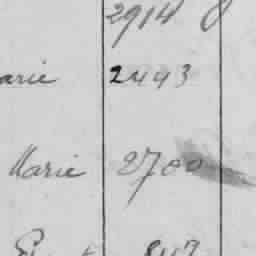 2914
arie 2443
Marie 2700